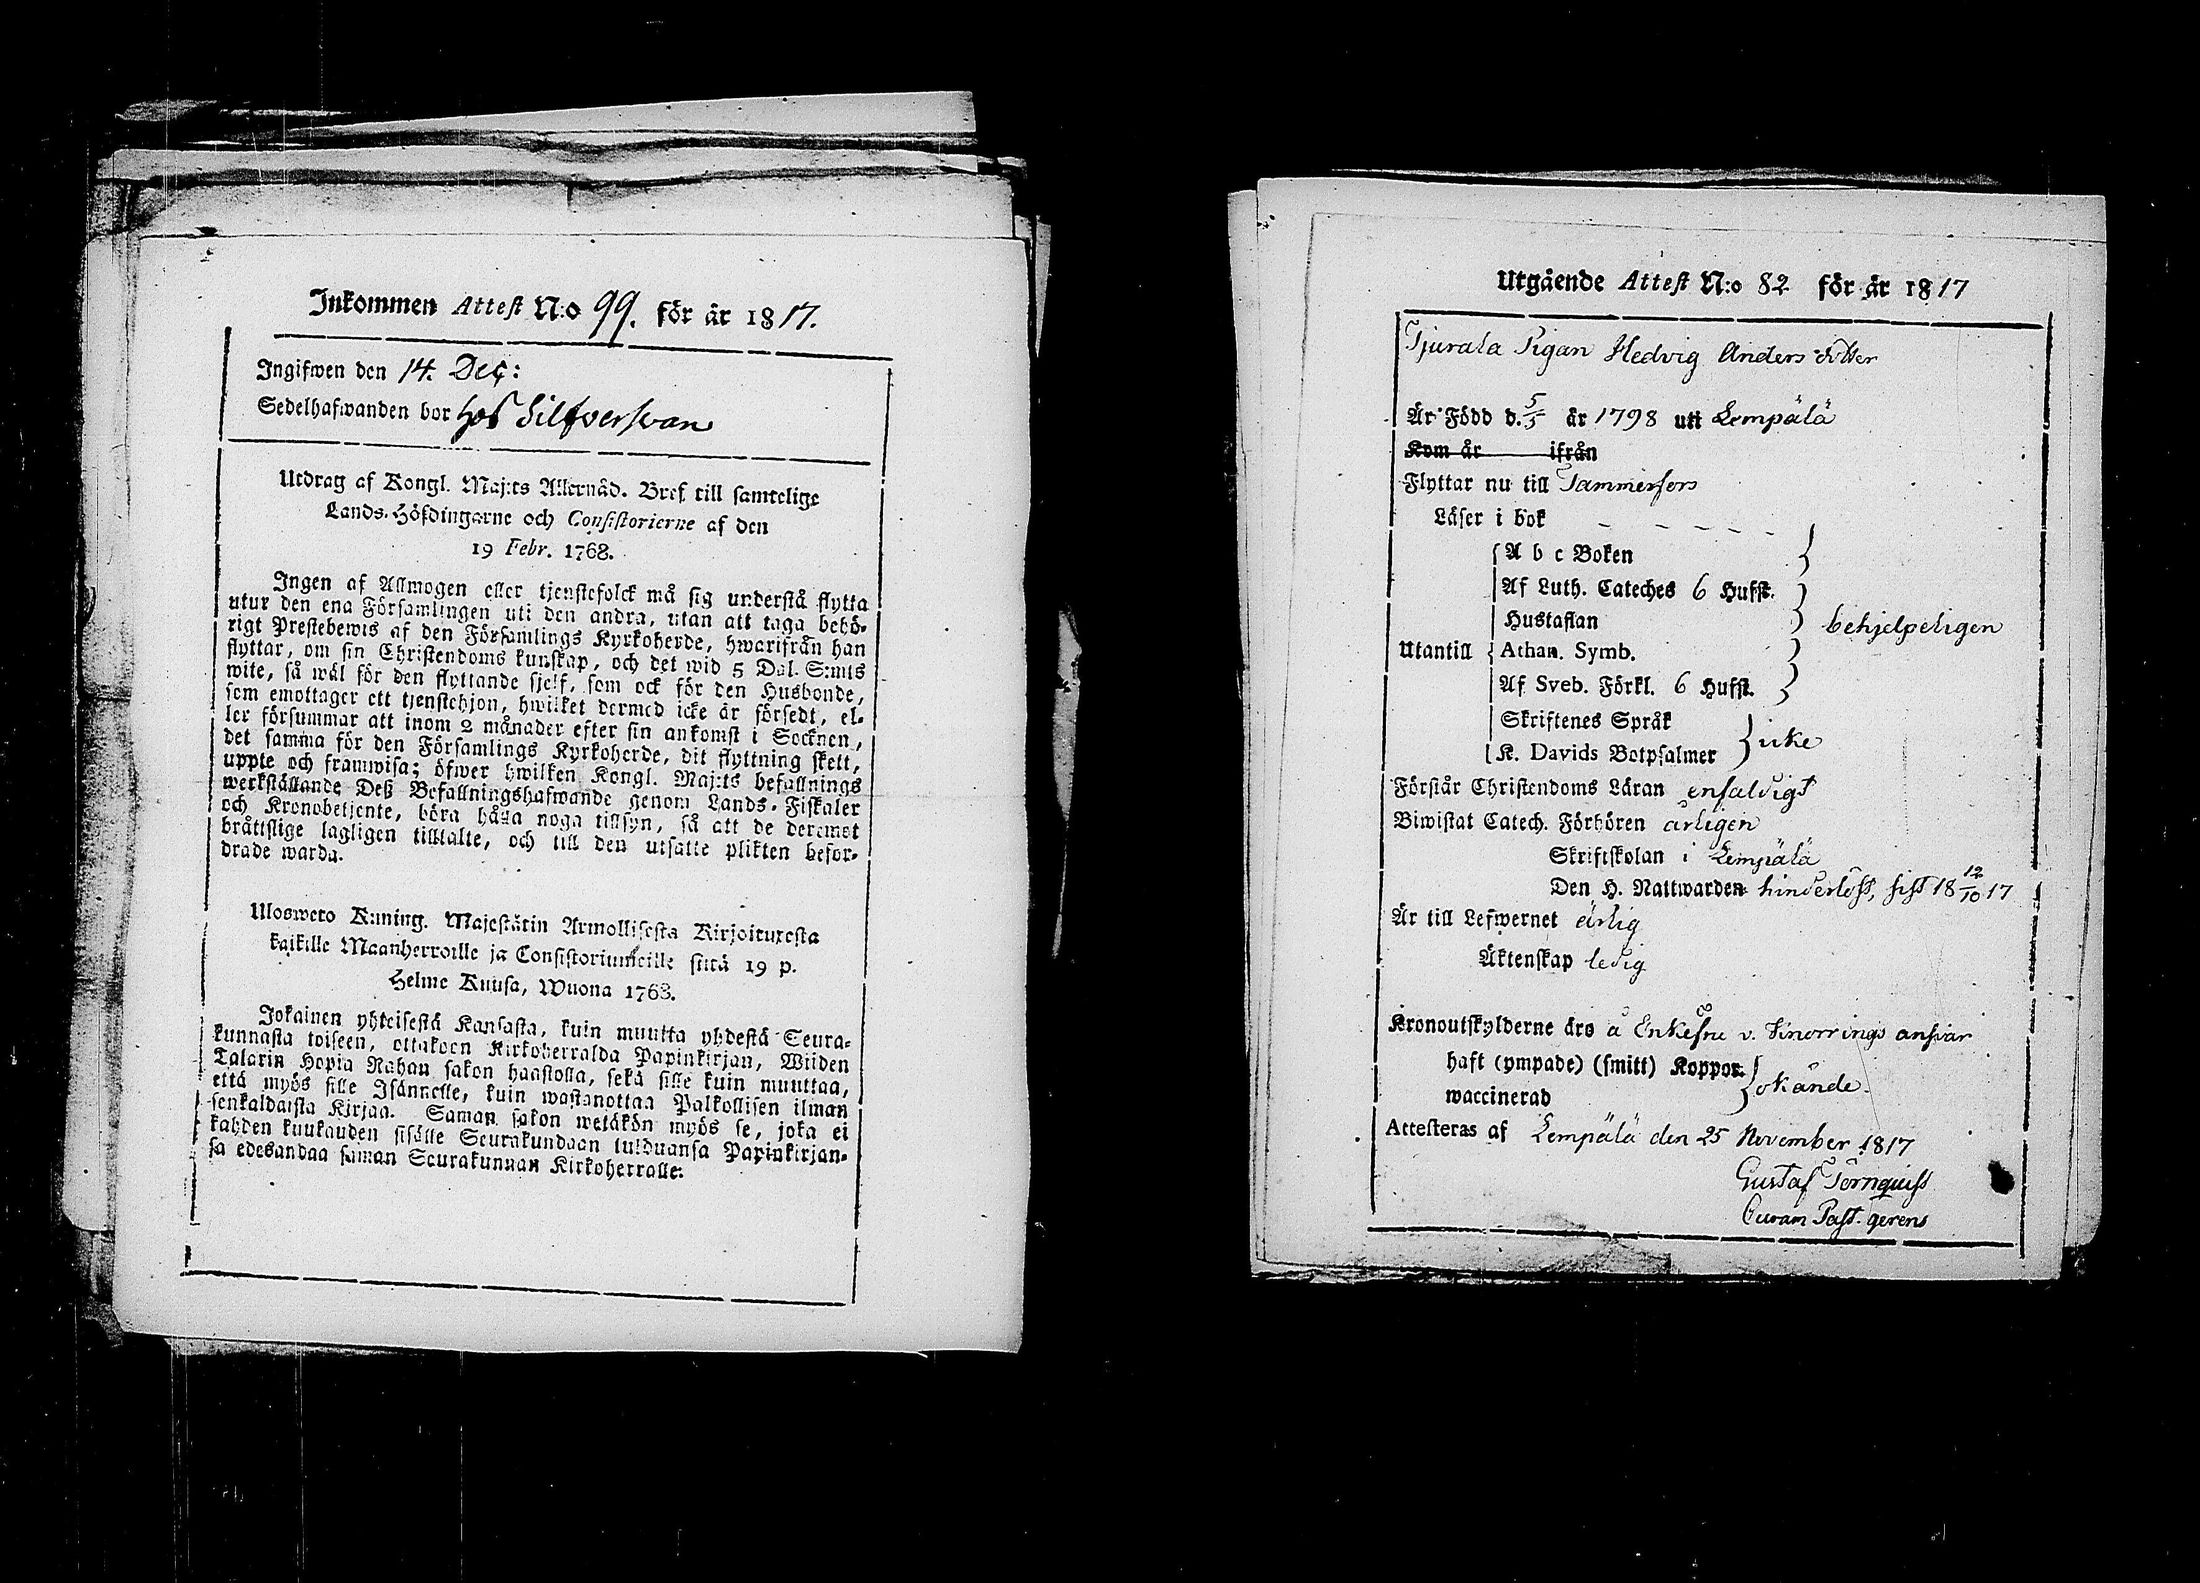 Inkommen Attest N:o 99. för år 1817.
Ingifwen den 14. Dec:
Sedelhafwanden bor hos Silfversvan
Utdrag af Kongl. Maj:ts Allernåd. Bref till samtelige
Lands-Höfdingarne och Consistorierne af den
19 Febr. 1768.
Ingen af Allmogen eller tjenstefolck må sig understå flytta
utur den ena Församlingen uti den andra, utan att taga behö-
rigt Prestebewis af den Församlings Kyrkoherde, hwarifrån han
flyttar, om sin Christendoms kunskap, och det wid 5 Dal. S:mts
wite, så wäl för den flyttande sjelf, som ock för den Husbonde,
som emottager ett tjenstehjon, hwilket dermed icke är försedt, el-
ler försummar att inom 2 månader efter sin ankomst i Socknen,
det samma för den Församlings Kyrkoherde, dit flyttning skett,
uppte och framwisa; öfwer hwilken Kongl. Maj:ts befallnings
werkställande Deß Befallningshafwande genom Lands-Fiskaler
och Kronobetjente, böra hålla noga tillsyn, så att de deremot
bråttslige lagligen tilltalte, och till den utsatte plikten befor-
drade warda.
Ulosweto Kuning. Majestätin Armollisesta Kirjoituxesta
kaikille Maanherroille ja Consistoriumeille siitä 19 p.
Helme Kuusa, Wuona 1768.
Jokainen yhteisestä Kansasta, kuin muutta yhdestä Seura-
kunnasta toiseen, ottakoon Kirkoherralda Papinkirjan, Wiiden
Talarin Hopia Rahan sakon haastolla, sekä sille kuin muuttaa,
että myös sille Isännelle, kuin wastanottaa Palkollisen ilman
senkaldaista Kirjaa. Saman sakon wetäkön myös se, joka ei
kahden kuukauden sisälle Seurakundaan tulduansa Papinkirjan-
sa edesandaa saman Seurakunnan Kirkoherralle.
Utgående Attest N:o 82 för år 1817
Tjurala Pigan Hedvig Anders dotter
Är Född d. 5/5 år 1798 uti Lempälä
Kom år ifrån
Flyttar nu till Tammerfors
Läser i bok - - - - -
A b c Boken
Af Luth. Cateches 6 Hufst.
Hustaflan behjelpeligen
Utantill Athan. Symb.
Af Sveb. Förkl. 6 Hufst.
Skriftenes Språk
K. Davids Botpsalmer icke
Förstår Christendoms Läran enfaldigt
Biwistat Catech. Förhören årligen
Skriftskolan i Lempälä
Den H. Nattwarden hinderlöst, sist 18 12/10 17
Är till Lefwernet ärlig
Äktenskap ledig
Kronoutskylderne äro å Enkefru v. Knorrings ansvar
haft (ympade) (smitt) Koppor
waccinerad okände.
Attesteras af Lempälä den 25 November 1817
Gustaf Törnquist
Curam Past. gerens